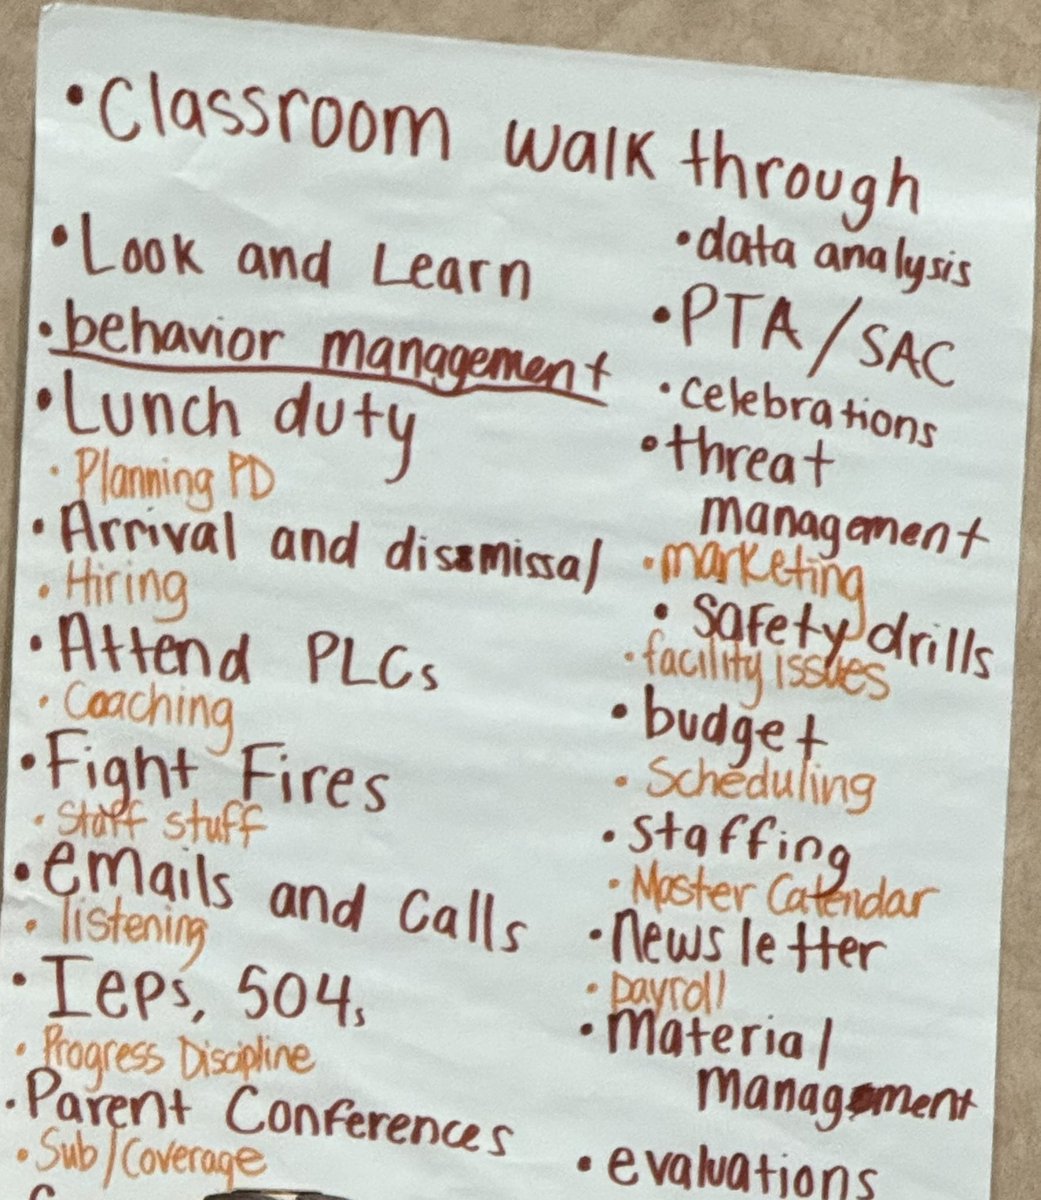 • Classroom walk through
• Look and Learn
• behavior management
• Lunch duty
• Planning PD
• Arrival and dissmissal
• Hiring
• Attend PLCs
• Coaching
• Fight Fires
• Staff stuff
• emails and calls
• listening
• Ieps, 504s
• Progress Discipline
• Parent Conferences
• Sub/Coverage
• data analysis
• PTA/SAC
• celebrations
• threat
management
• marketing
• safety drills
• facility issues
• budget
• Scheduling
• staffing
• Master Calendar
• newsletter
• payroll
• Material
management
• evaluations